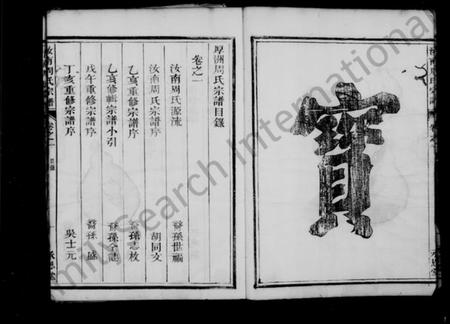 寶
汝南周氏宗譜
厚洲周氏宗譜目錄
卷之一
汝南周氏源流 裔孫世福
汝南周氏宗譜序 胡同文
乙亥重修宗譜序 裔孫志枚
乙亥修輯宗譜小引 裔孫全志
戊午重修宗譜序 裔孫盛
丁亥重修宗譜序 吳士元
汝南周氏宗譜
卷之一
目錄
承思堂
FamilySearch International